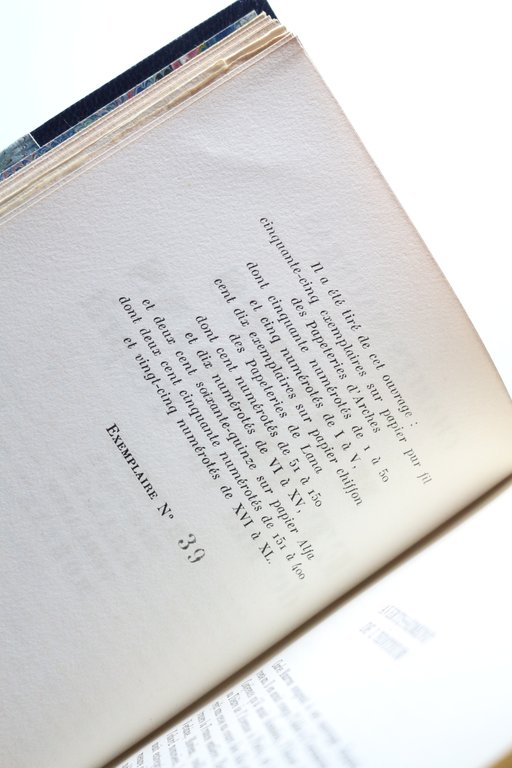 Il a été tiré de cet ouvrage :
cinquante-cinq exemplaires sur papier pur fil
des Papeteries d'Arches
dont cinquante numérotés de 1 à 50
et cinq numérotés de I à V,
cent dix exemplaires sur papier chiffon
des Papeteries de Lana
dont cent numérotés de 51 à 150
et dix numérotés de VI à XV,
et deux cent soixante-quinze sur papier Alfa
dont deux cent cinquante numérotés de 151 à 400
et vingt-cinq numérotés de XVI à XL.
EXEMPLAIRE N° 39